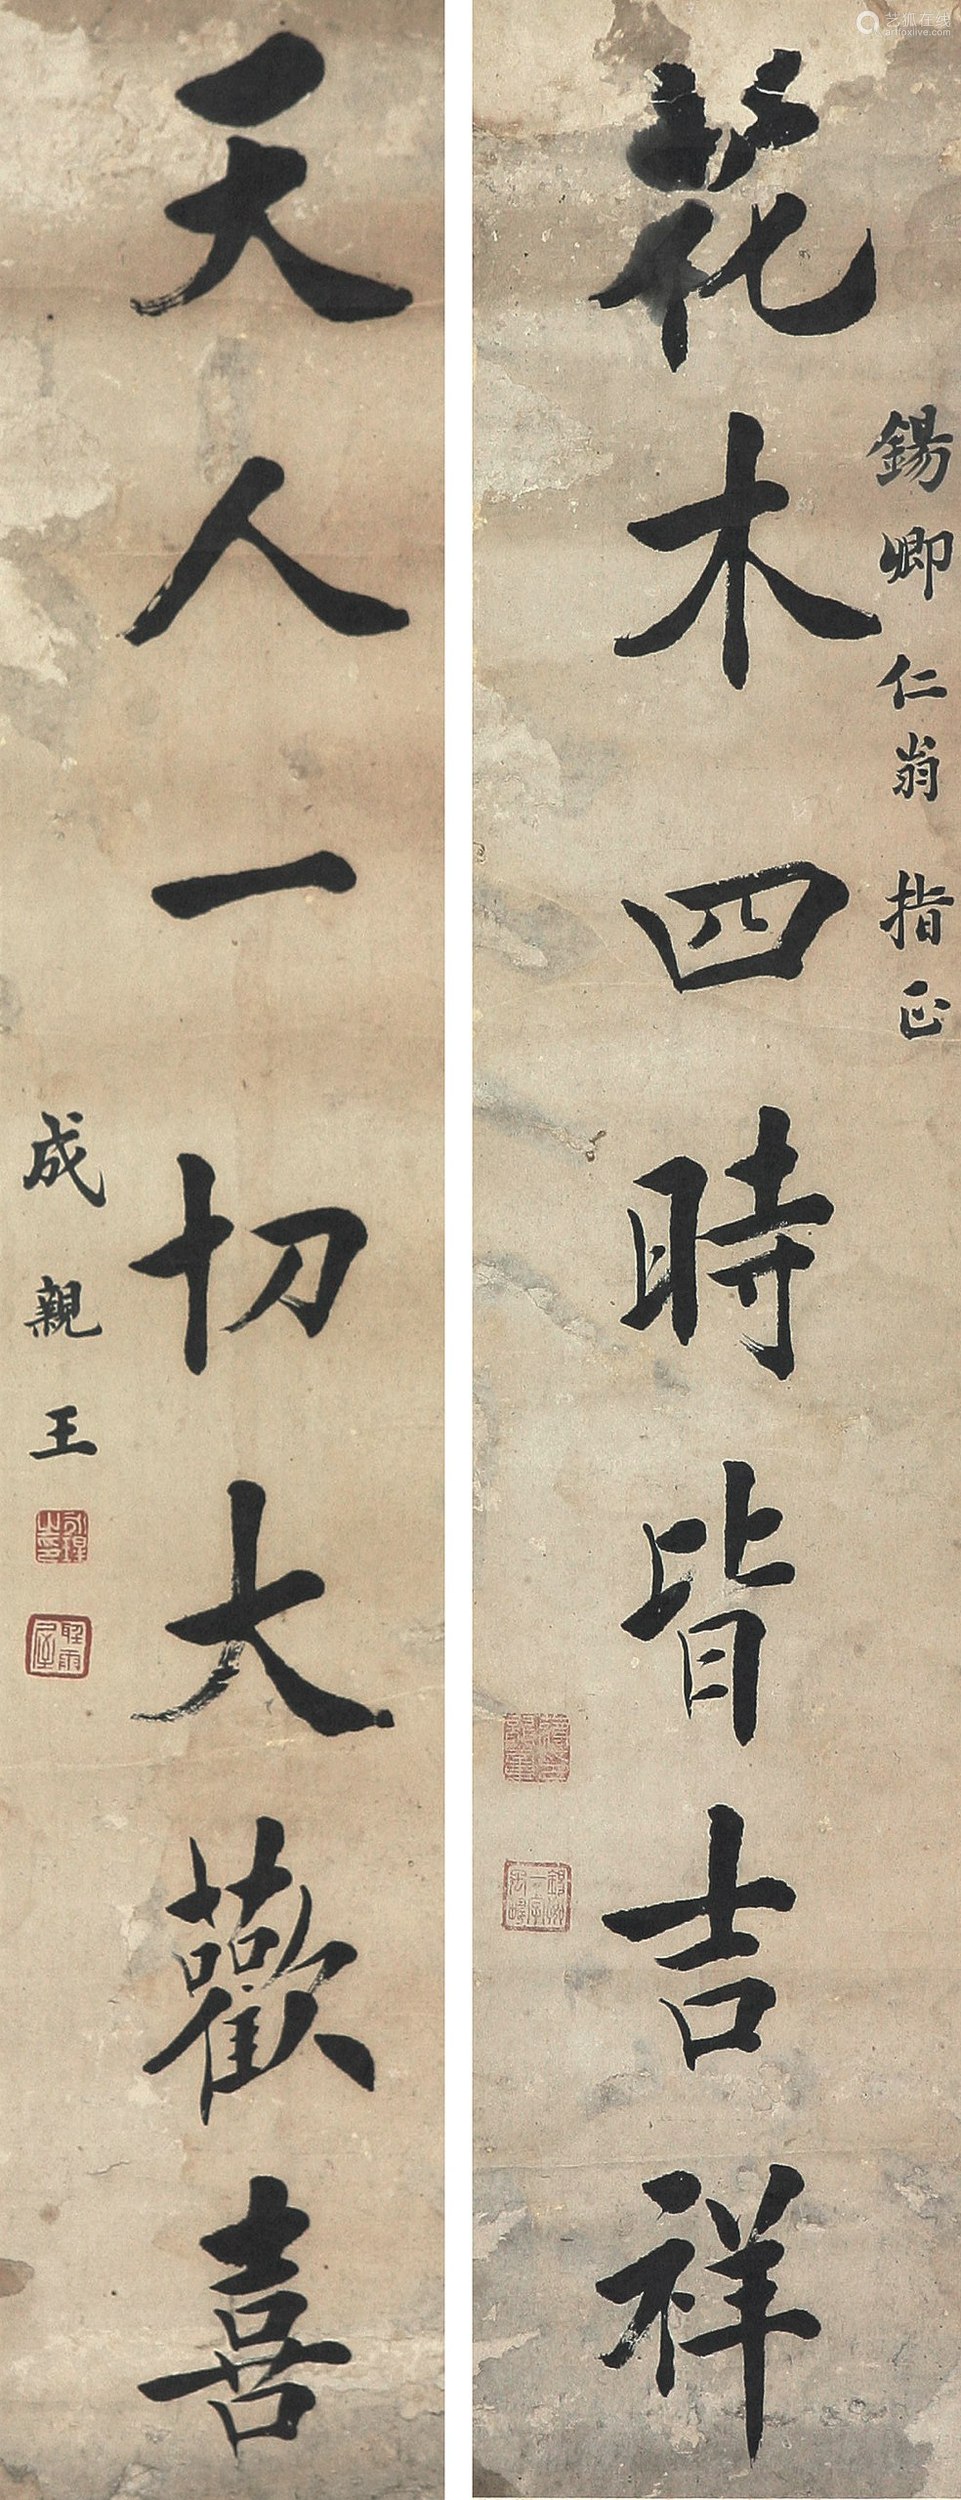 錫卿仁翁指正
花木四時皆吉祥
天人一切大歡喜
成親王
聽雨屋
艺狐在线
artfoxlive.com